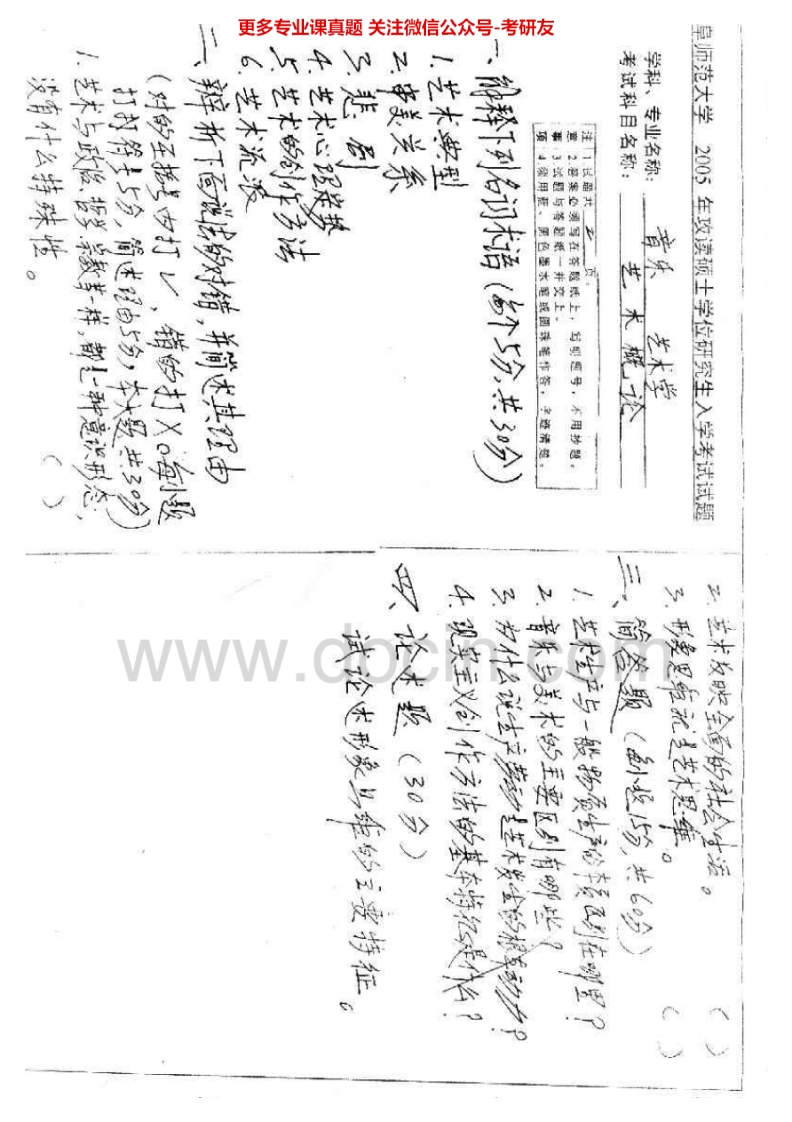 更多专业课真题 关注微信公众号-考研友
阜师范大学 2005 年攻读硕士学位研究生入学考试试题
学科、专业名称：音乐 艺术学
考试科目名称：艺术概论
注 1.试题共 2 页。
意 2.答案必须写在答题纸上，写明题号，不用抄题。
事 3.试题与答题纸一并交上。
项 4.须用蓝、黑色墨水笔或圆珠笔作答，字迹清楚。
一、解释下列名词术语（每个5分，共30分）
1.艺术典型
2.审美关系
3.悲剧
4.艺术心理定势
5.艺术的创作方法
6.艺术流派
二、辩析下面说法的对错，并简述其理由
（对的在括号内打√，错的打×。每小题
打对符号5分，简述理由5分，本大题共30分）
1.艺术与政治、哲学、宗教等一样，都是一种意识形态，
没有什么特殊性。 （ ）
2.艺术反映全面的社会生活。 （ ）
3.形象思维就是艺术思维。 （ ）
三、简答题（每小题15分，共60分）
1.艺术生产与一般物质生产的本质区别在哪里？
2.音乐与美术的主要区别有哪些？
3.为什么说生产劳动是艺术发生的根本动力？
4.现实主义创作方法的基本特征是什么？
四、论述题（30分）
试论述形象思维的主要特征。
www.docin.com